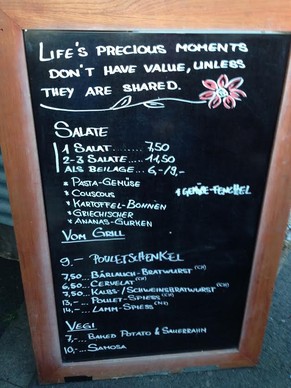 LIFE'S PRECIOUS MOMENTS
DON'T HAVE VALUE, UNLESS
THEY ARE SHARED.
SALATE
1 SALAT........ 7,50
2-3 SALATE..... 11,50
ALS BEILAGE... 6,-/9,-
* PASTA-GEMÜSE
* COUSCOUS
* KARTOFFEL-BOHNEN
* GRIECHISCHER
* ANANAS-GURKEN
VOM GRILL
9.- POULETSCHENKEL
7,50... BÄRLAUCH-BRATWURST (CH)
6,50... CERVELAT (CH)
7,50... KALBS-/SCHWEINSBRATWURST (CH)
13,-... POULET-SPIESS
14,-... LAMM-SPIESS
VEGI
7,-... BAKED POTATO & SAUERRAHM
10,-... SAMOSA